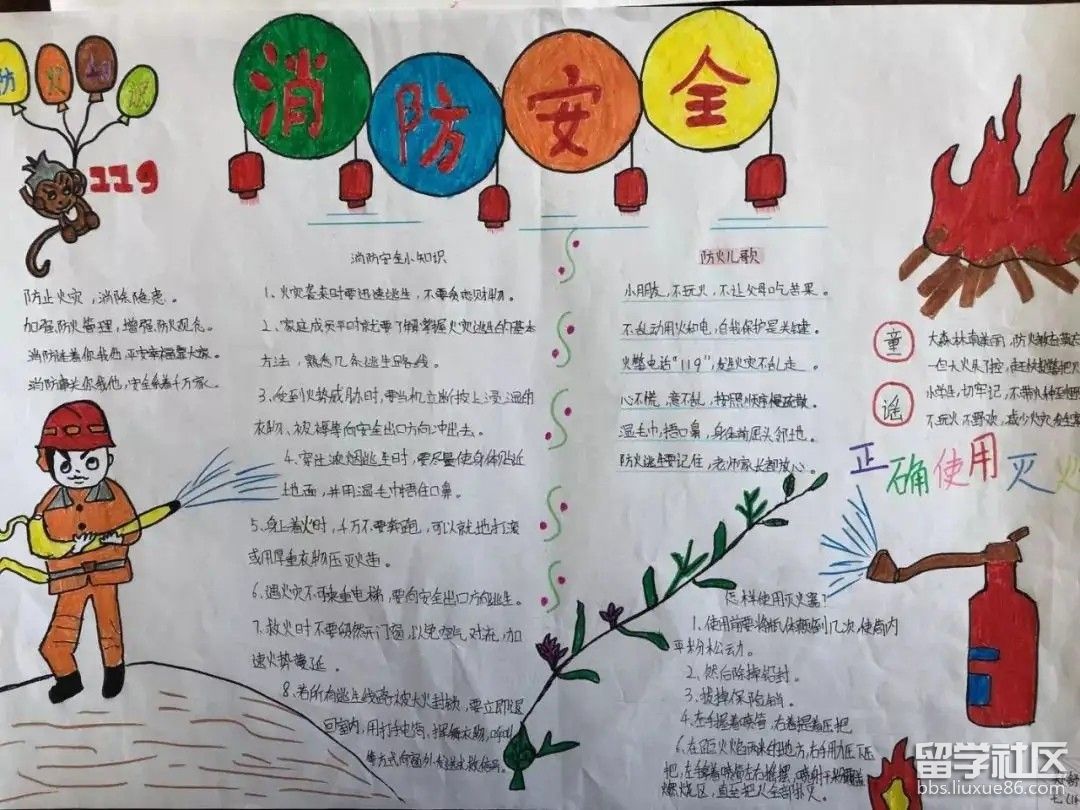 消防安全
防火
119
防止火灾，消除隐患。
加强防火管理，增强防火观念。
消防连着你我他 平安幸福靠大家
消防牵关你我他，安全系着千万家。
消防安全小知识
1、火灾袭来时要迅速逃生，不要贪恋财物。
2、家庭成员平时就要了解掌握火灾逃生的基本
方法，熟悉几条逃生路线。
3、受到火势威胁时，要当机立断披上浸湿的
衣物、被褥等向安全出口方向冲出去。
4、穿过浓烟逃生时，要尽量使身体贴近
地面，并用湿毛巾捂住口鼻。
5、身上着火时，千万不要奔跑，可以就地打滚
或用厚重衣物压灭火苗。
6、遇火灾不可乘坐电梯，要向安全出口方向逃生。
7、救火时不要贸然开门窗，以免空气对流，加
速火势蔓延。
8、若所有逃生线路被大火封锁，要立即退
回室内，用打手电筒、挥舞衣物、呼叫
等方式向窗外发送求救信号。
防火儿歌
小朋友，不玩火，不让父母吃苦果。
不乱动用火和电，自我保护是关键。
火警电话"119"，发生火灾不乱走。
心不慌，意不乱，按照顺序慢疏散。
湿毛巾，捂口鼻，身体前屈头邻地。
防火逃生要记住，老师家长都放心。
童谣
大森林，南美闭，防火
一旦火火
小学生，切牢记，不带火种
不玩火 不野炊，减少火灾
正确使用灭火
怎样使用灭火器？
1、使用前要将瓶体颠倒几次，使筒内
干粉松动。
2、然后除掉铅封。
3、拔掉保险销。
4、左手握着喷管，右手提着压把
6、在距火焰两米的地方，右手用力压下压
把，左手拿着喷管左右摇摆，喷射干粉覆盖
燃烧区，直至把火全部扑灭。
留学社区
bbs.liuxue86.com